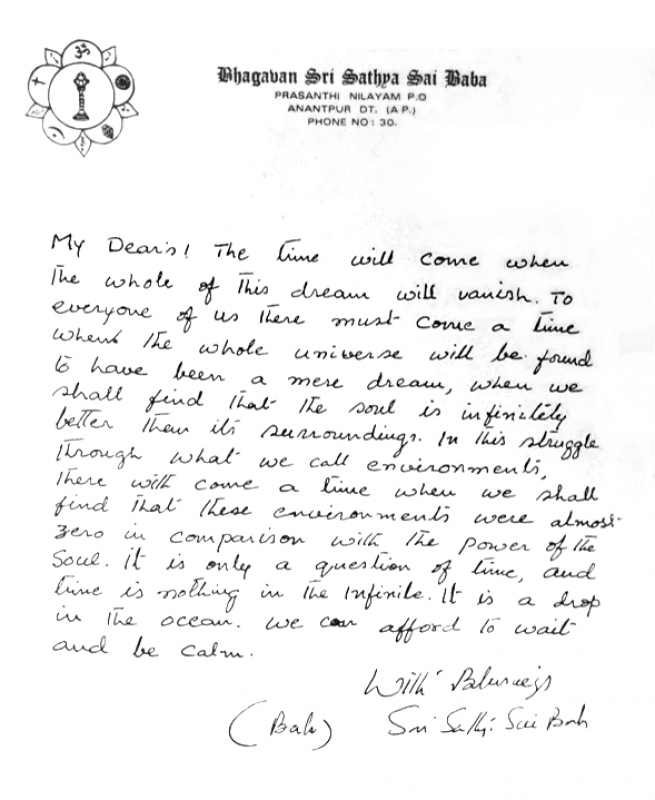 ॐ
Bhagavan Sri Sathya Sai Baba
PRASANTHI NILAYAM P.O
ANANTPUR DT. (A.P.)
PHONE NO: 30.
My Dear's! The time will come when
the whole of this dream will vanish. To
everyone of us there must come a time
when the whole universe will be found
to have been a mere dream, when we
shall find that the soul is infinitely
better then its surroundings. In this struggle
through what we call environments,
there will come a time when we shall
find that these environments were almost
zero in comparison with the power of the
Soul. It is only a question of time, and
time is nothing in the Infinite. It is a drop
in the ocean. We can afford to wait
and be calm.
With
(Baba) Sri Sathya Sai Baba